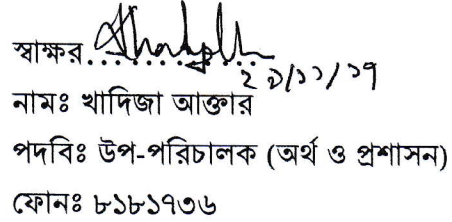 স্বাক্ষর..................
২৯/১১/১৭
নামঃ খাদিজা আক্তার
পদবিঃ উপ-পরিচালক (অর্থ ও প্রশাসন)
ফোনঃ ৮১৮১৭৩৬